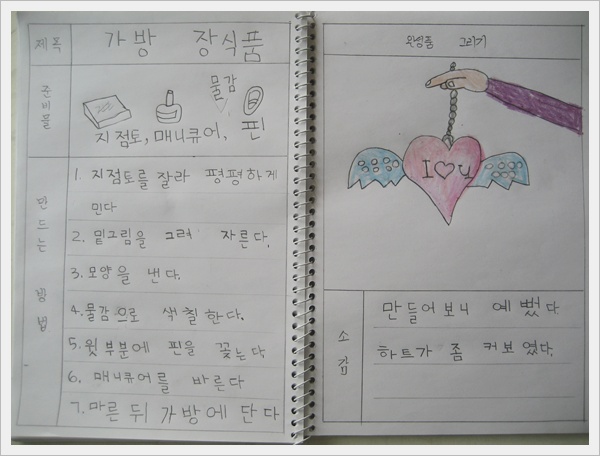 제목
가방 장식품
준비물
물감
지점토, 매니큐어, 핀
만드는 방법
1. 지점토를 잘라 평평하게
민다
2. 밑그림을 그려 자른다.
3. 모양을 낸다.
4. 물감으로 색칠한다.
5. 윗부분에 핀을 꽂는다.
6. 매니큐어를 바른다
7. 마른 뒤 가방에 단다
완성품 그리기
I♡u
소감
만들어보니 예뻤다.
하트가 좀 커보였다.